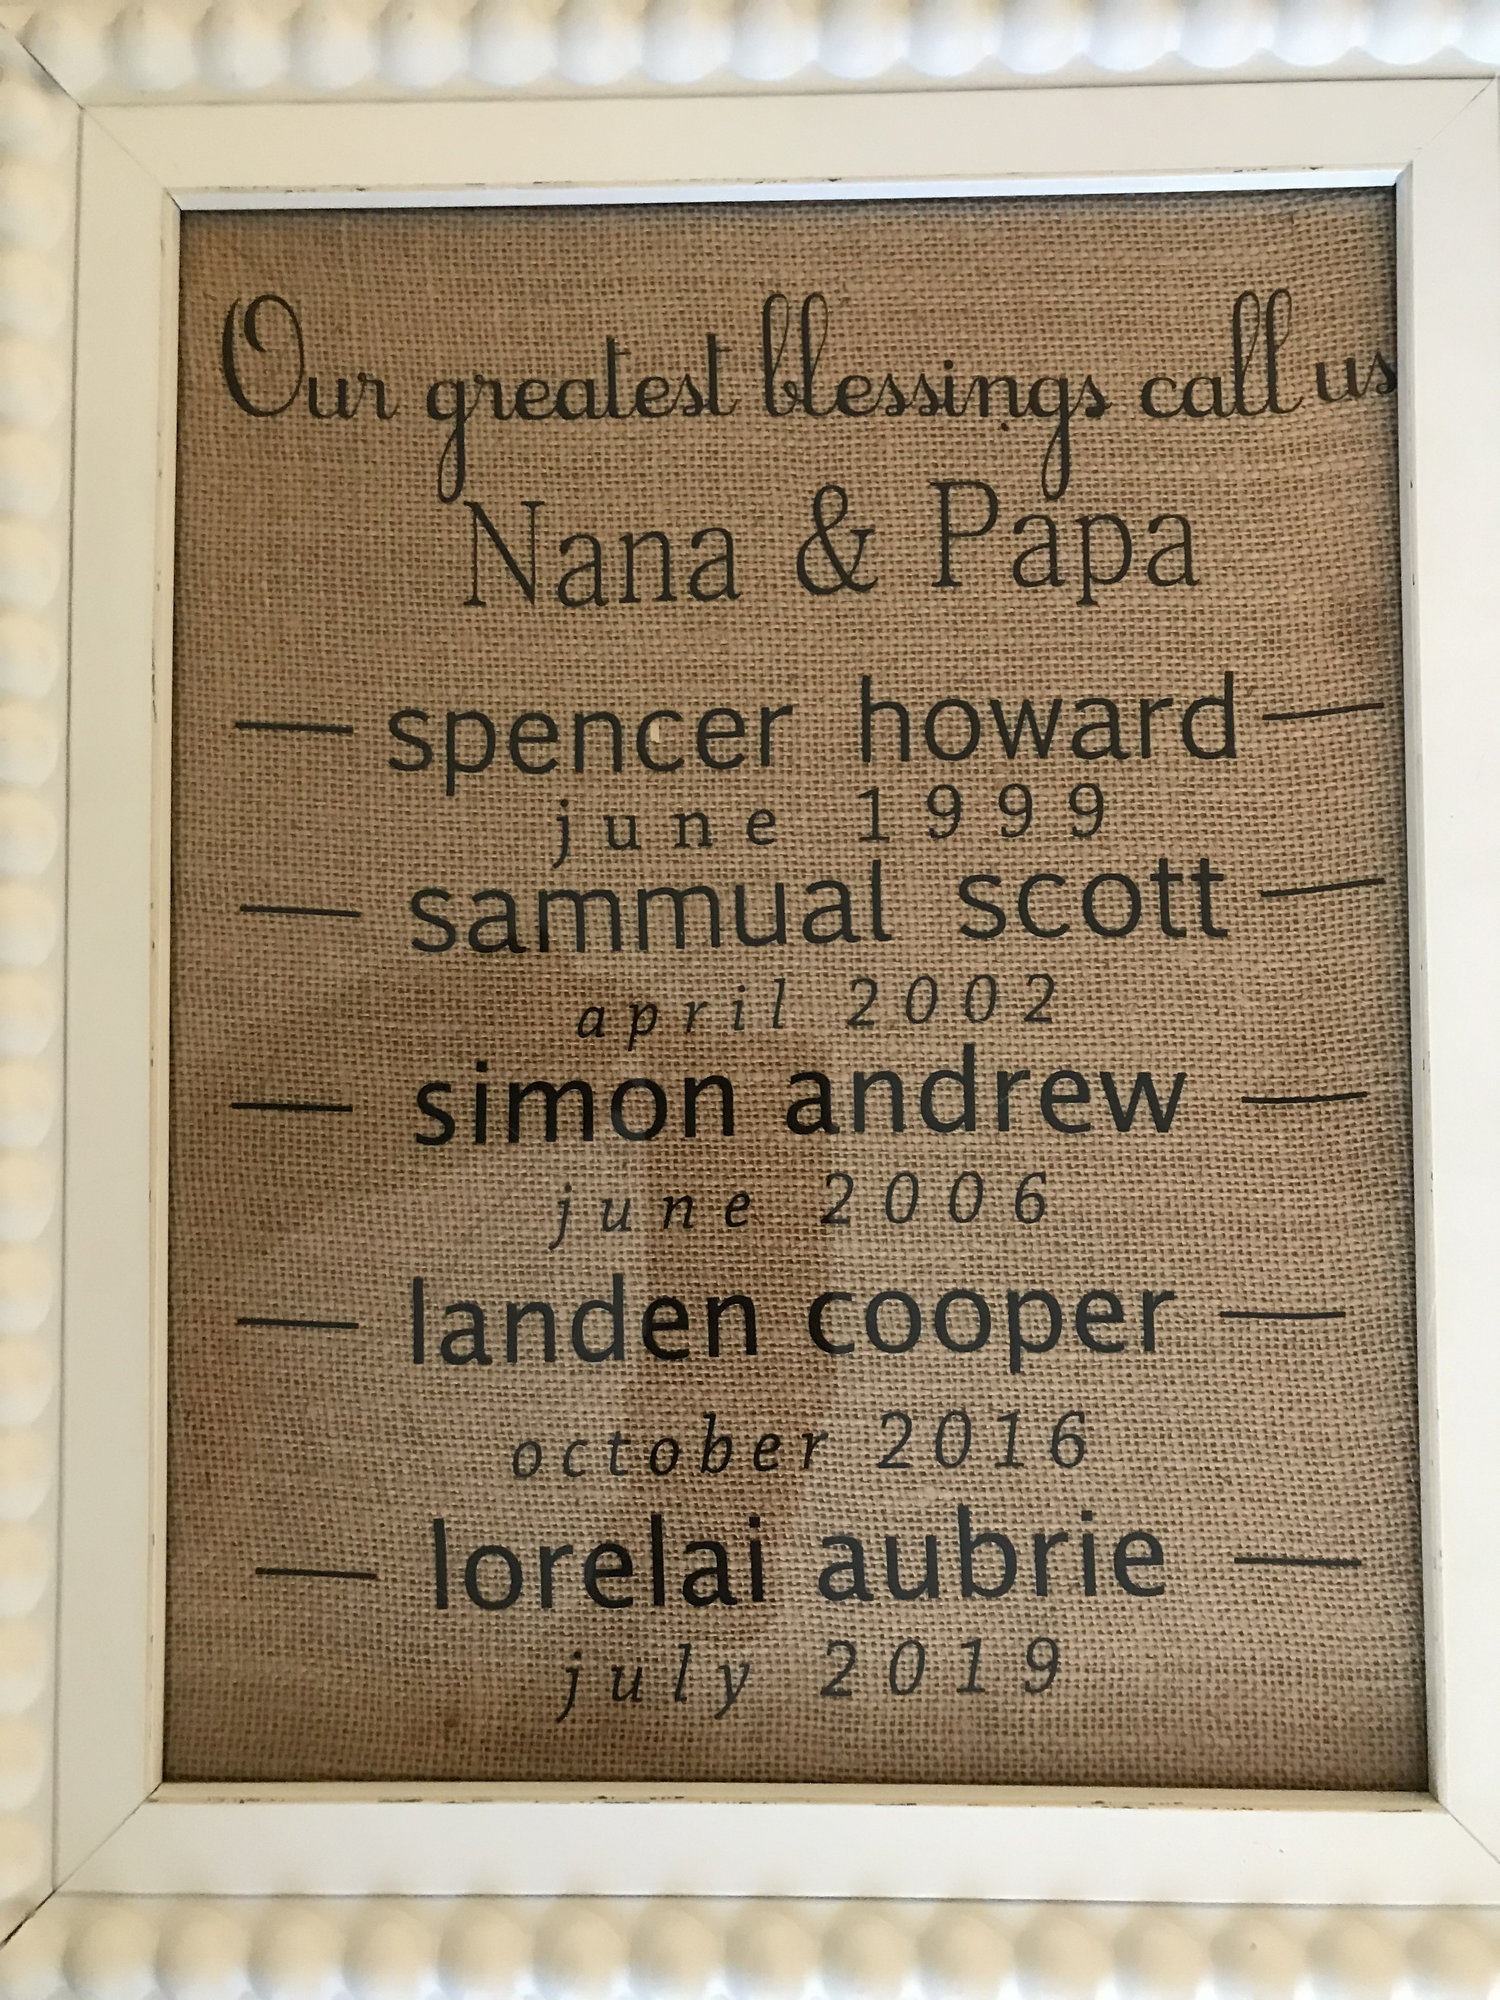 Our greatest blessings call us
Nana & Papa
— spencer howard —
june 1999
— sammual scott —
april 2002
— simon andrew —
june 2006
— landen cooper —
october 2016
— lorelai aubrie —
july 2019